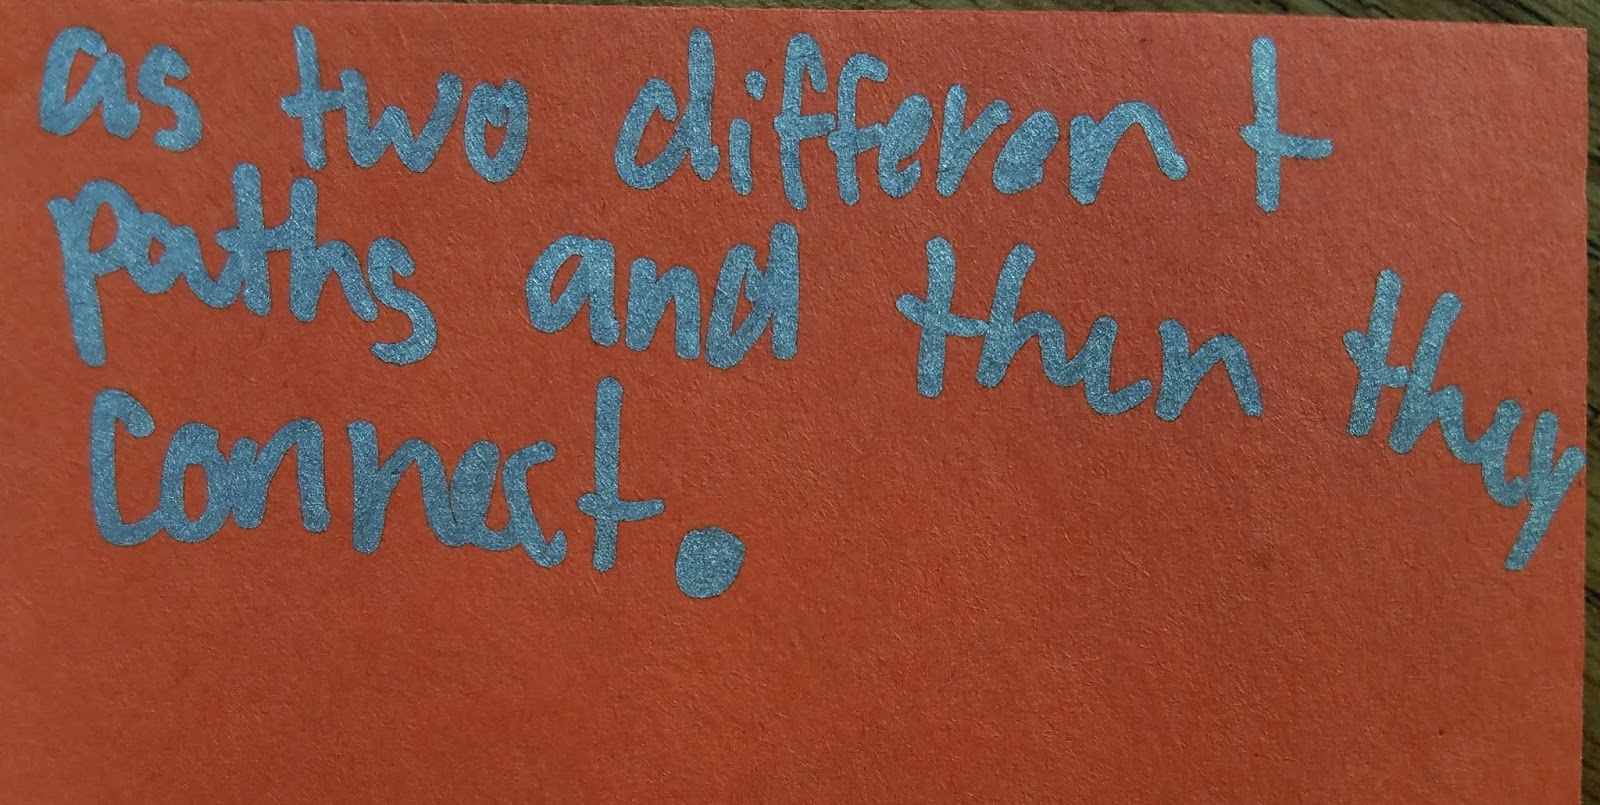 as two different
paths and then they
connect.